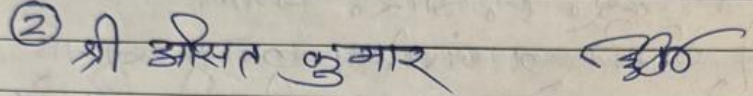 ② श्री असित कुंमार